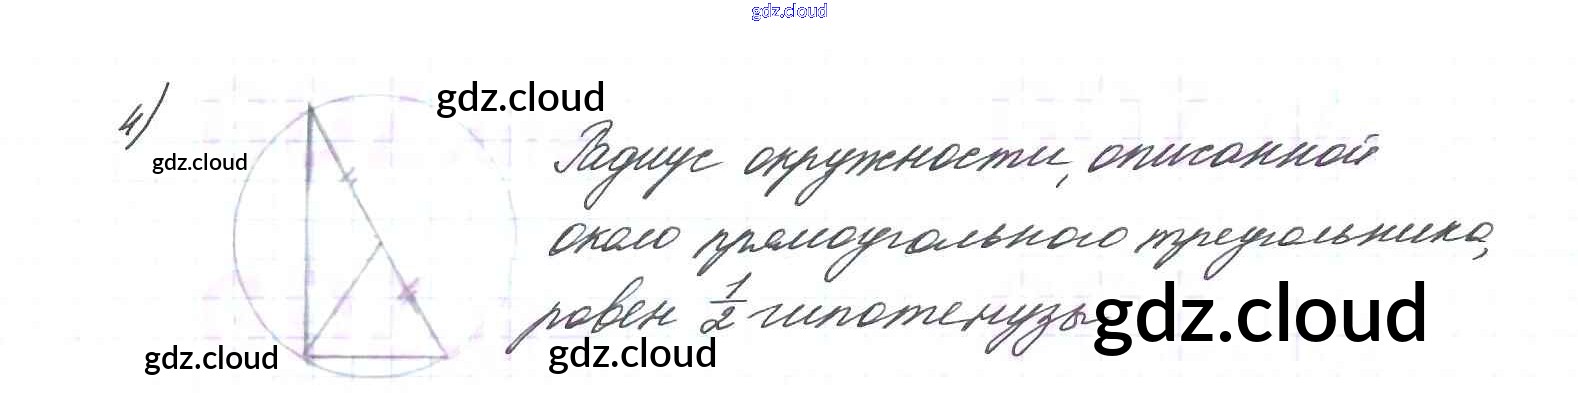 gdz.cloud
4)
gdz.cloud
gdz.cloud
Радиус окружности, описанной
около прямоугольного треугольника,
равен 1/2 гипотенузы
gdz.cloud
gdz.cloud
gdz.cloud